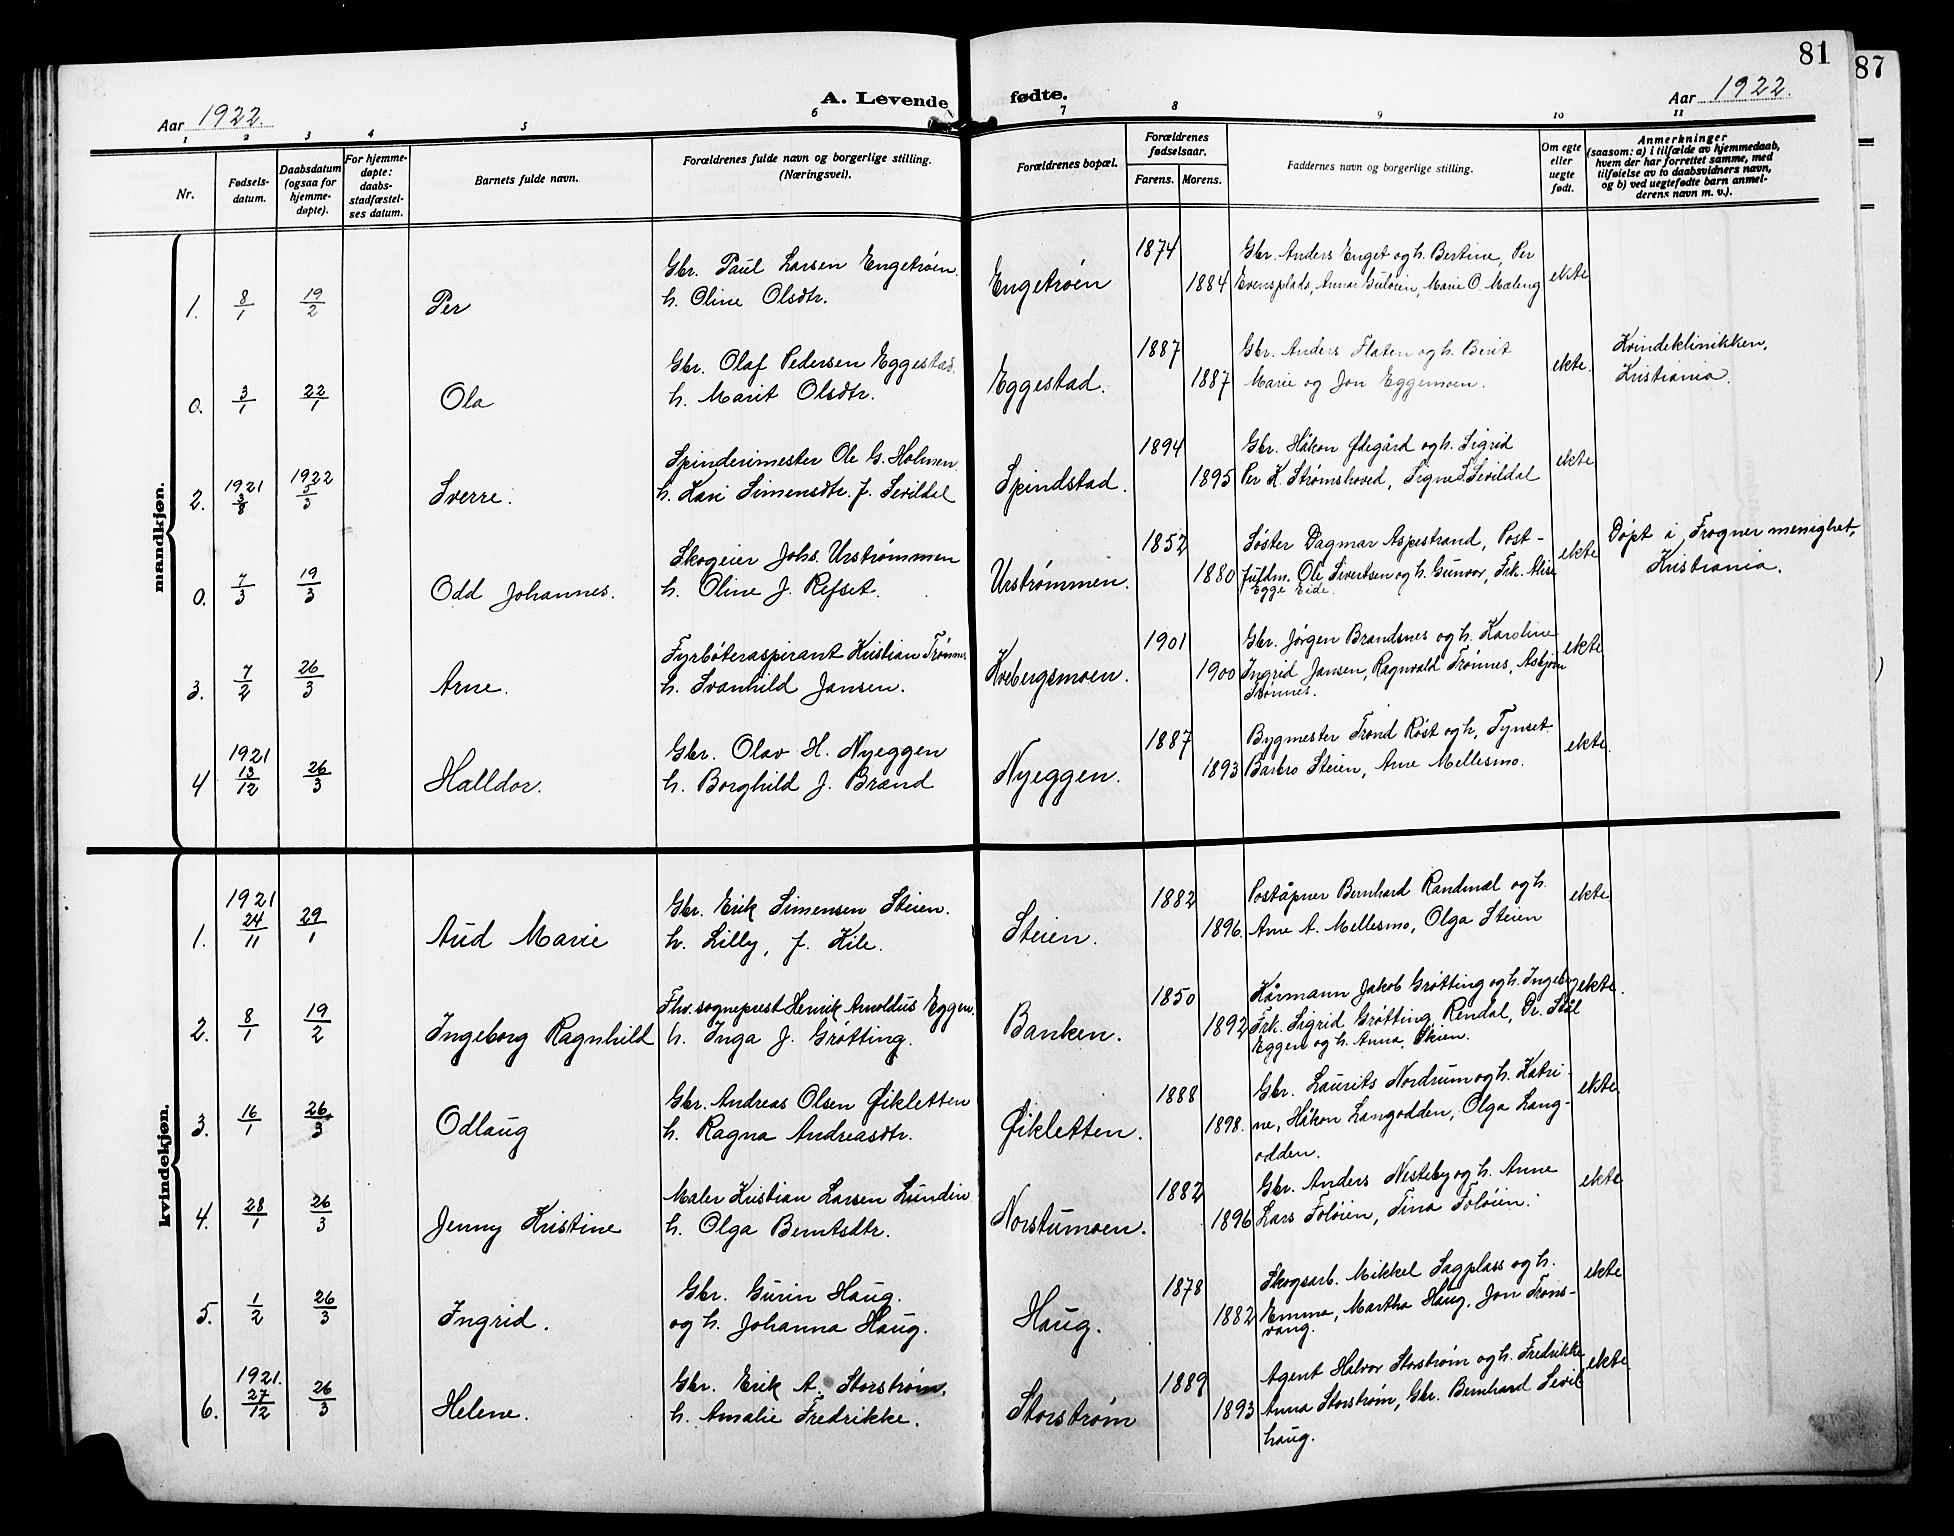 81
87
Aar 1922.
A. Levende fødte.
Aar 1922.
1 2 3 4 5 6 7 8 9 10 11
Nr.
Fødsels-
datum.
Daabsdatum
(ogsaa for
hjemme-
døpte).
For hjemme-
døpte:
daabs-
stadfæstel-
ses datum.
Barnets fulde navn.
Forældrenes fulde navn og borgerlige stilling.
(Næringsvei).
Forældrenes bopæl.
Forældrenes
fødselsaar.
Farens. Morens.
Faddernes navn og borgerlige stilling.
Om egte
eller
uegte
født.
Anmerkninger
(saasom: a) i tilfælde av hjemmedaab,
hvem der har forrettet samme, med
tilføielse av to daabsvidners navn,
og b) ved uegtefødte barn anmel-
derens navn m. v.).
mandkjøn.
Gbr. Paul Larsen Engetrøen. 1874 Gbr. Anders Enget og h. Bertine, Per
1. 8/1 19/2 Per h. Oline Olsdtr. Engetrøen 1884 Evensplads, Annar Guløien, Marie O. Mæleng ekte
Gbr. Olaf Pedersen Eggestad. 1887 Gbr. Anders Flaten og h. Berit Kvindeklinikken,
0. 3/1 22/1 Ola h. Marit Olsdtr. Eggestad. 1887 Marie og Jon Eggemoen. ekte. Kristiania.
Spinderimester Ole G. Holmen. 1894 Gbr. Håkon Ødegård og h. Sigrid
2. 1921 3/8 1922 5/3 Sverre. h. Kari Simensdtr. f. Sevildal Spindstad. 1895 Per K. Strømshoved, Signe S. Sevildal ekte
Skogeier Johs. Urstrømmen 1852 Søster Dagmar Aspestrand, Post- Døpt i Frogner menighet,
0. 7/3 19/3 Odd Johannes. h. Oline J. Refset. Urstrømmen. 1880 fuldm. Ole Sivertsen og h. Gunvor, Frk. Alise ekte Kristiania.
Egge Eide.
Fyrbøteraspirant Kristian Trønnes 1901 Gbr. Jørgen Brandsnes og h. Karoline
3. 7/2 26/3 Arne. h. Svanhild Jansen. Kvebergsmoen. 1900 Ingrid Jansen, Ragnvald Trønnes, Asbjørn ekte
Trønnes.
Gbr. Olav H. Nyeggen 1887 Bygmester Trond Røst og h. Tynset
4 1921 13/12 26/3 Halldor. h. Borghild J. Brænd Nyeggen. 1893 Barbro Steien, Arne Mellesmo. ekte.
kvindekjøn.
Gbr. Erik Simensen Steien. 1882 Poståpner Bernhard Randmæl og h.
1. 1921 24/11 29/1 Aud Marie h. Lilly, f. Kile. Steien. 1896. Arne A. Mellesmo, Olga Steien ekte
Fhv. sogneprest Henrik Arnoldus Eggen. 1850 Kårmann Jakob Grøtting og h. Ingeborg
2. 8/1 19/2 Ingeborg Ragnhild h. Inga J. Grøtting. Banken. 1892 Frk. Sigrid Grøtting Rendal, Dr. Stål ekte.
Eggen og h. Anna, Skien.
Gbr. Andreas Olsen Øikletten 1888 Gbr. Laurits Nordrum og h. Katri-
3. 16/1 26/3 Odlaug h. Ragna Andreasdtr. Øikletten. 1898. ne, Håkon Langodden, Olga Lang- ekte
odden.
Maler Kristian Larsen Lundin 1882 Gbr. Anders Nesteby og h. Anne
4. 28/1 26/3 Jenny Kristine h. Olga Berntsdtr. Norstumoen. 1896 Lars Foløien, Tina Foløien. ekte
Gbr. Gurin Haug. 1878 Skogsarb. Mikkel Sagplass og h.
5. 1/2 26/3 Ingrid. og h. Johanna Haug. Haug. 1882 Emma, Martha Haug, Jon Trons- ekte
vang.
Gbr. Erik A. Storstrøm. 1889 Agent Halvor Storstrøm og h. Fredrikke
6. 1921. 27/12 26/3 Helene. h. Amalie Fredrikke. Storstrøm 1893 Anna Storstrøm, Gbr. Bernhard Sevil ekte
haug.